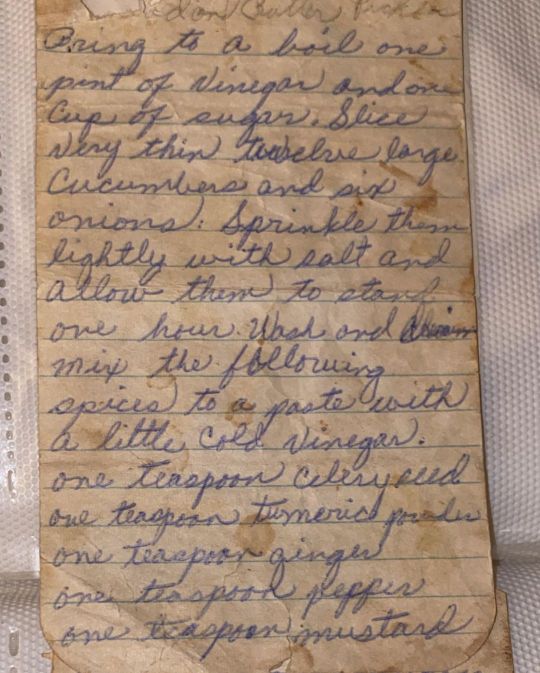 Butter Pickle
Bring to a boil one
pint of vinegar and one
Cup of sugar. Slice
very thin twelve large
Cucumbers and six
onions: Sprinkle them
lightly with salt and
allow them to stand
one hour. Wash and
mix the following
spices to a paste with
a little Cold vinegar.
one teaspoon Celery seed
one teaspoon tumeric powder
one teaspoon ginger
one teaspoon pepper
one teaspoon mustard